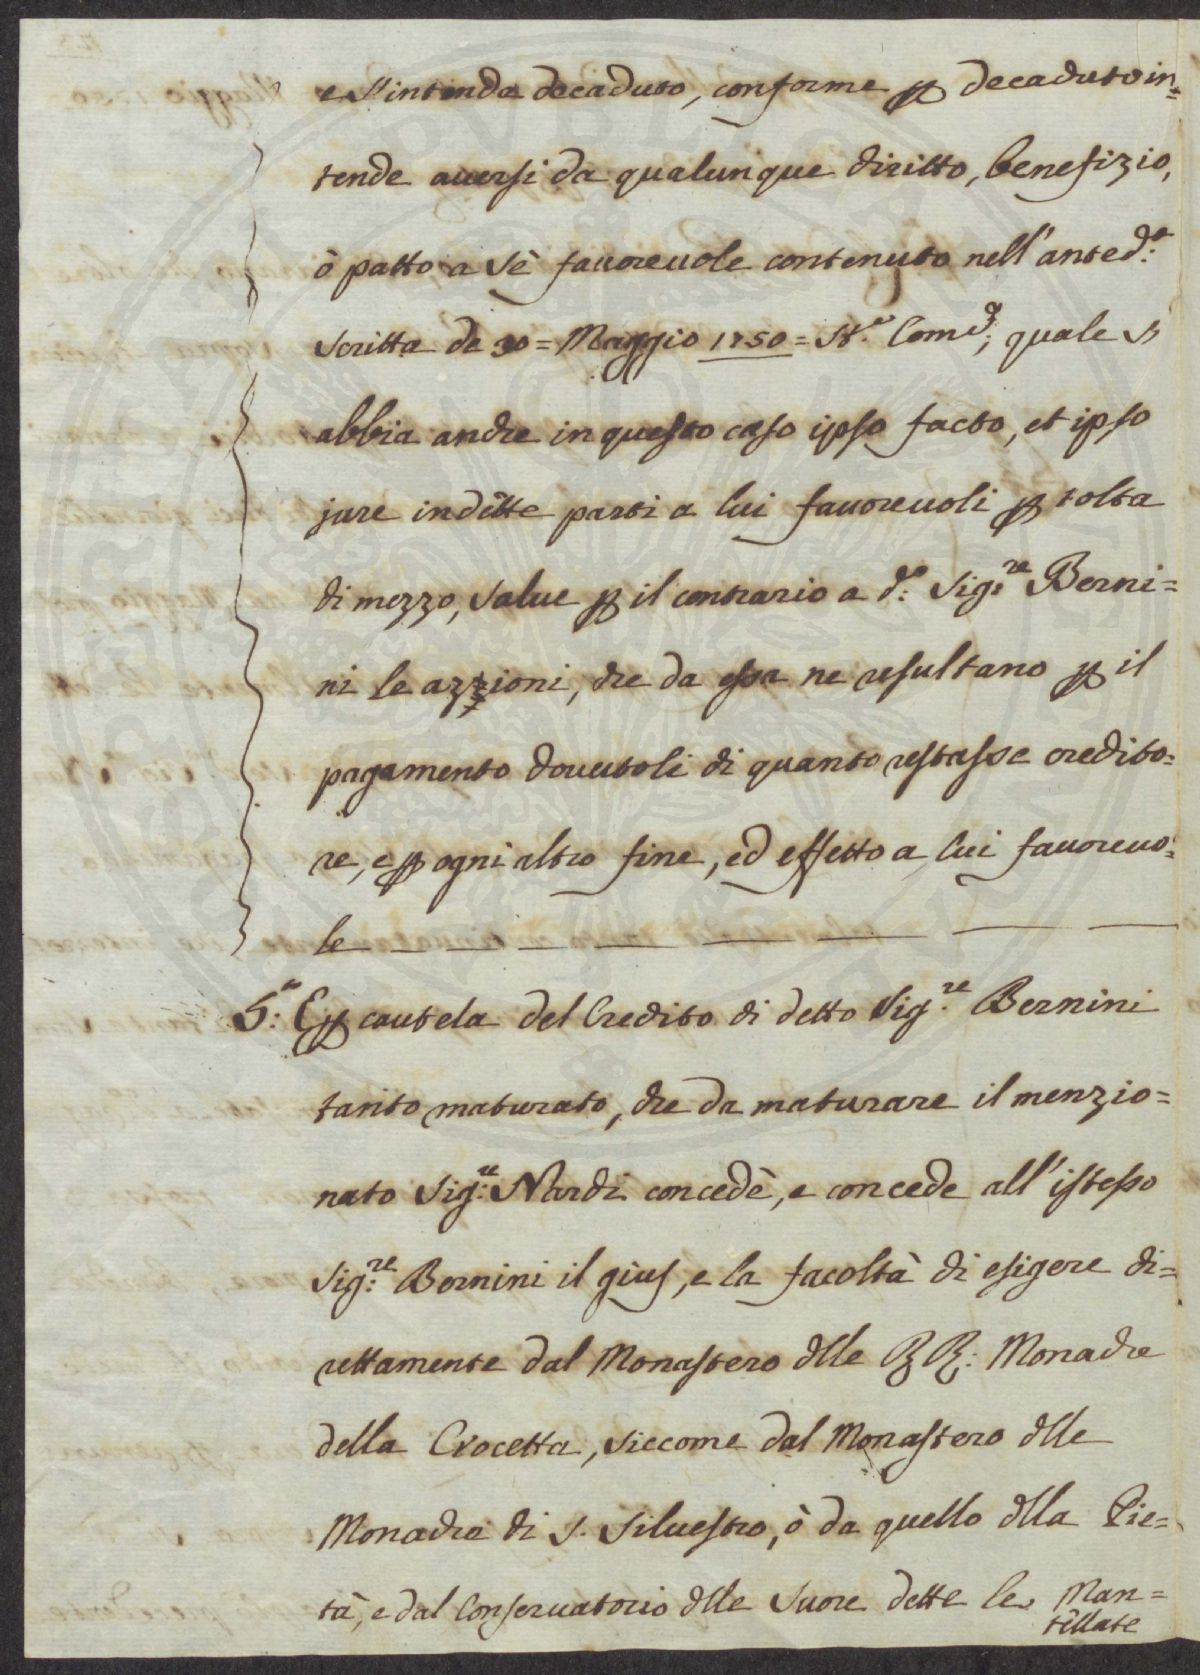 e s'intenda decaduto, conforme p decaduto in=
tende aversi da qualunque diritto, benefizio,
ò patto a sè favorevole contenuto nell'anted.ª
scritta de 30= Maggio 1750= St.e Com.e, quale si
abbia anche in questo caso ipso facto, et ipso
jure in dette parti a lui favorevoli p tolta
di mezzo, salve p il contrario a d.º Sig.re Berni=
ni le azzioni, che da essa ne resultano p il
pagamento dovutoli di quanto restasse credito=
re, e p ogni altro fine, ed effetto a lui favorevo=
le
5.º E p cautela del Credito di detto Sig.re Bernini
tanto maturato, che da maturare il menzio=
nato Sig.re Nardi concedè, e concede all'istesso
Sig.re Bernini il gius, e la facoltà di esigere di=
rettamente dal Monastero dlle RR: Monache
della Crocetta, siccome dal Monastero dlle
Monache di S. Silvestro, ò da quello dlla Pie=
tà, e dal Conservatorio dlle Suore dette le Man=
tellate